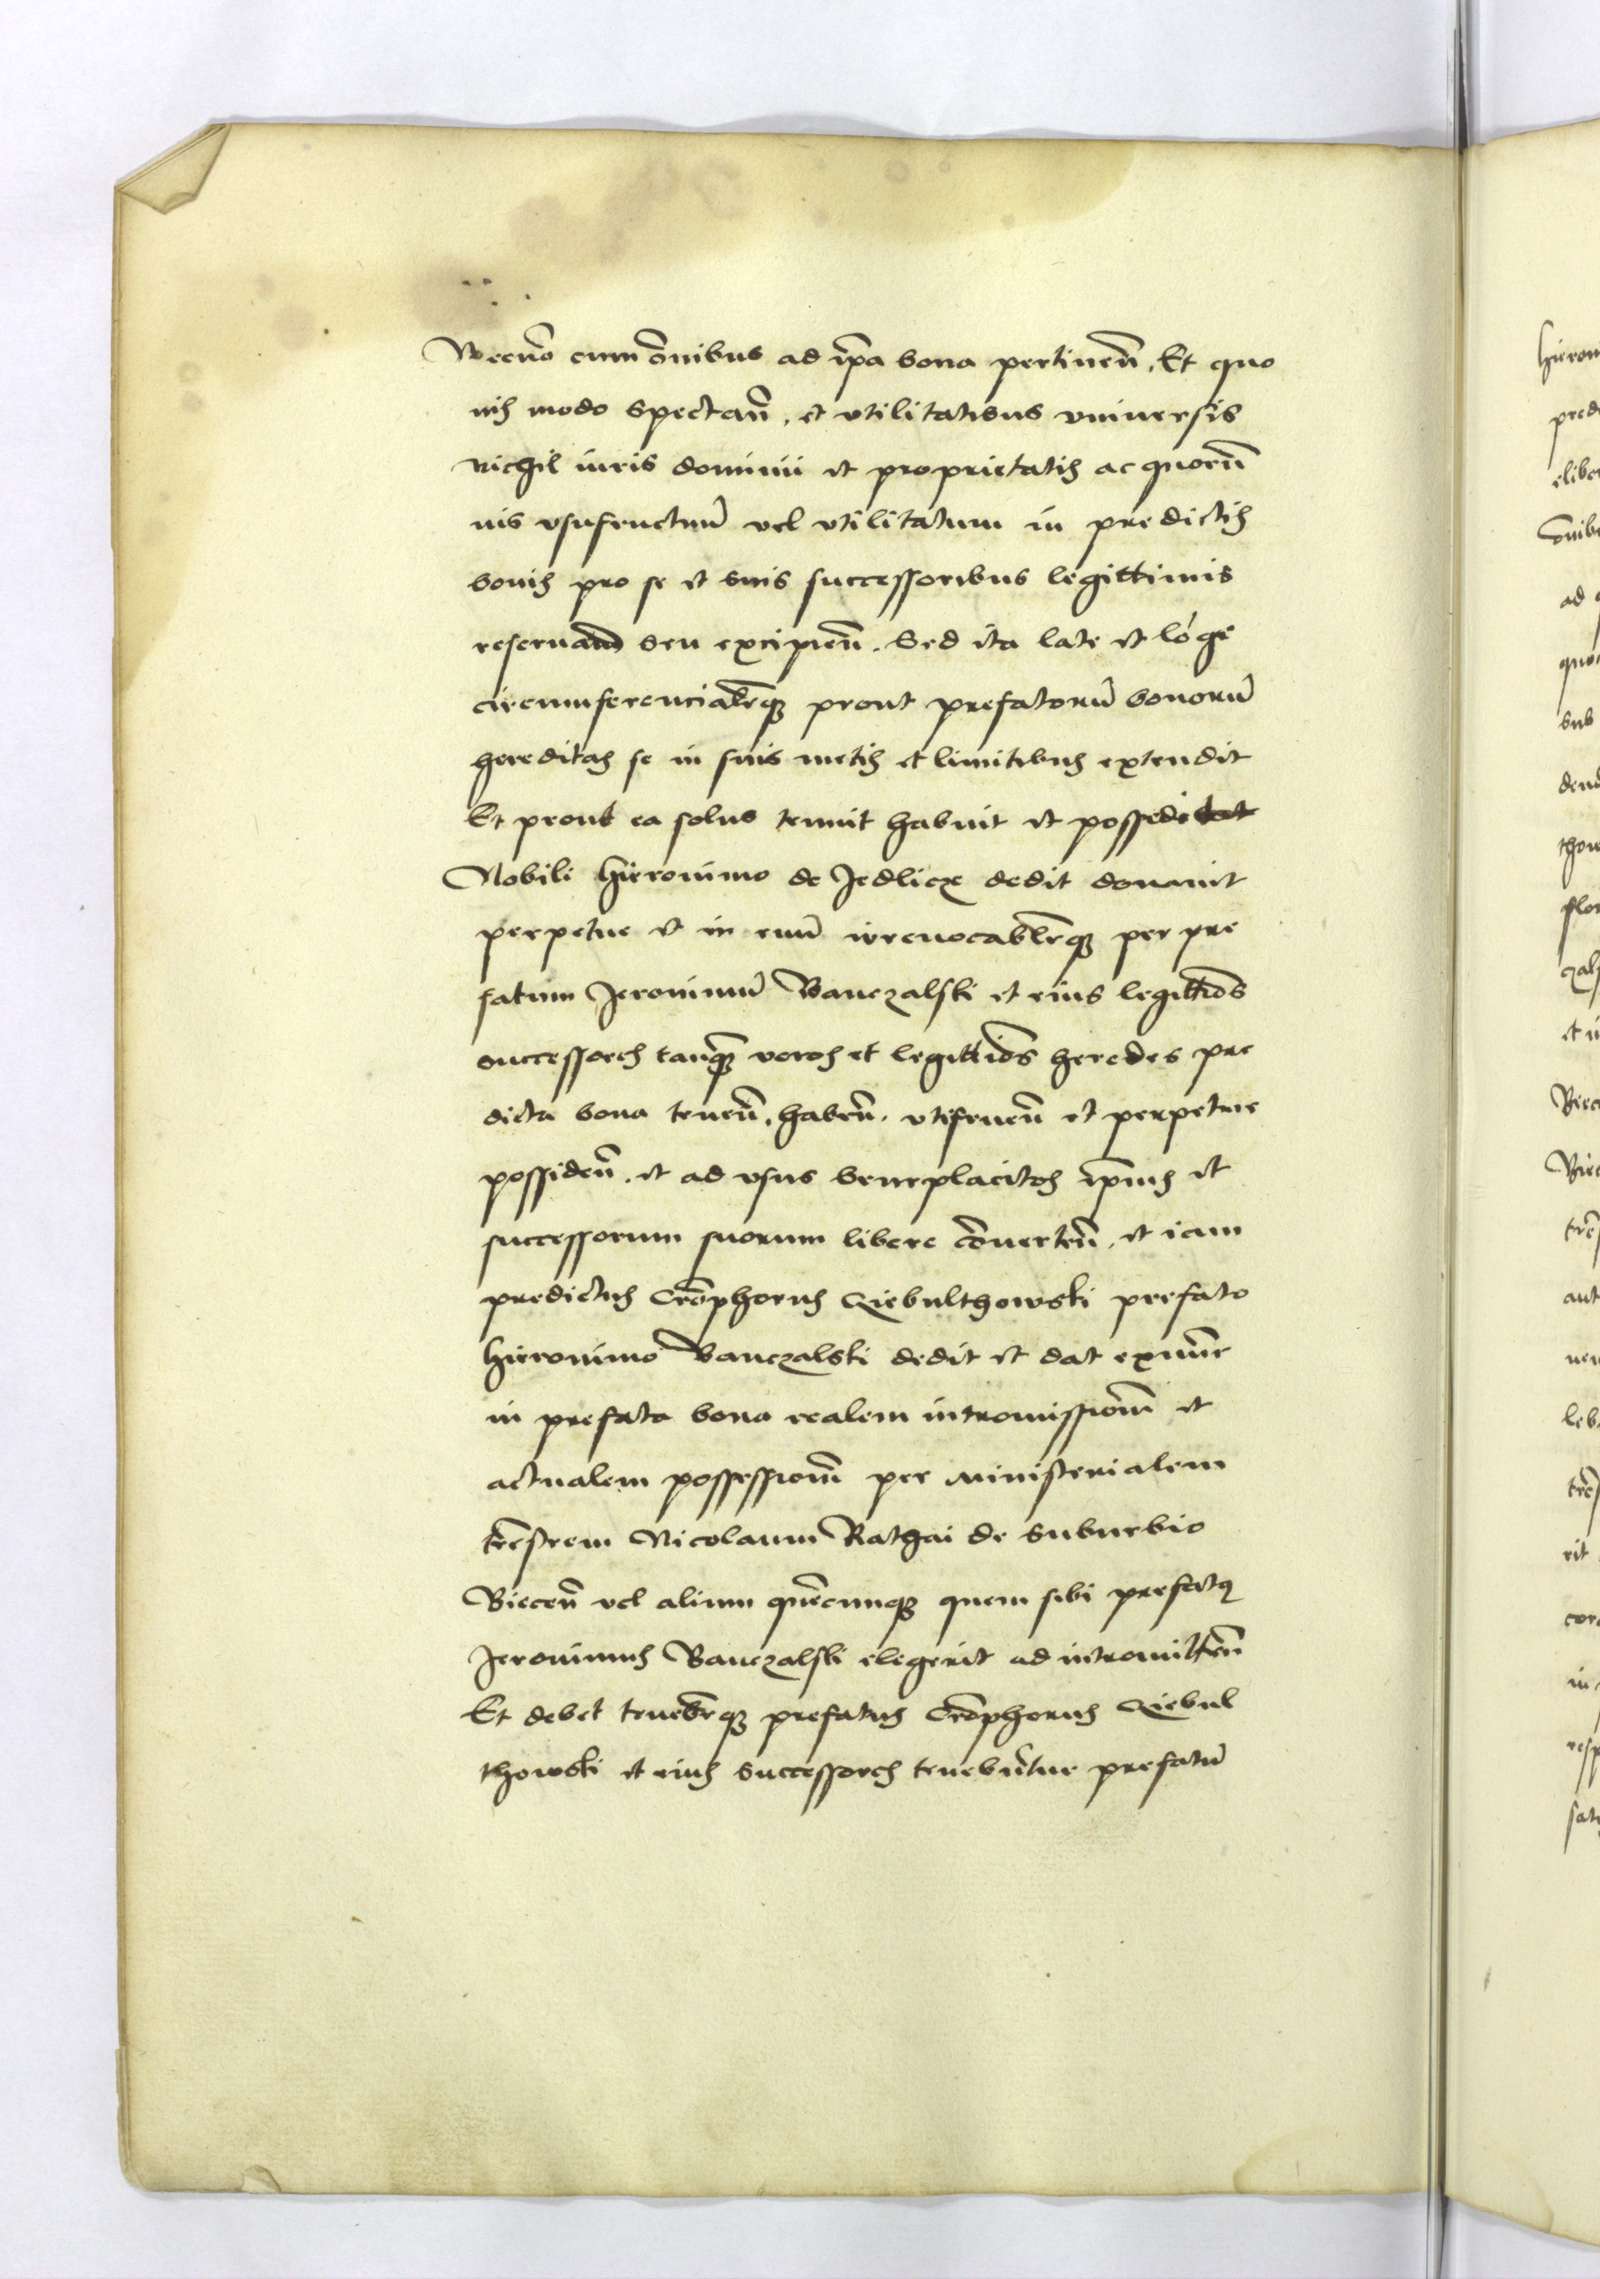 Necno cum oibus ad ipa bona pertinen. Et quo
uis modo spectan. et vtilitatibus vniuersis
nichil iuris dominii et proprietatis ac quorũ
uis vsufructuũ vel vtilitatum in predictis
bonis pro se et suis successoribus legittimis
reseruando seu excipien. Sed ita late et lõge
circumferencialrqȝ prout prefatorũ bonorũ
hereditas se in suis metis et limitibus extendit
Et prout ea solus tenuit habuit et possedit
Nobili Hieronimo de Jedlicze dedit donauit
perpetue et in euũ irreuocablrqȝ per pre
fatum Jeronimũ Banczalski et eius legittios
successores tanqȝ veros et legittios heredes pre
dicta bona tenen. haben. vtifruen et perpetue
possiden. et ad vsus beneplacitos ipius et
successorum suorum libere cõuerten. et iam
predictus Crõphorus Giebulthowski prefato
Hieronimo Banczalski dedit et dat exnunc
in prefata bona realem intromissionẽ et
actualem possessionẽ per ministerialem
trẽstrem Nicolaum Rathai de suburbio
Biecen vel alium quẽcunqȝ quem sibi prefatus
Jeronimus Banczalski elegerit ad intromitten
Et debet tenebrqȝ prefatus Crõphorus Giebul
thowski et eius successores tenebũtur prefatũ
Hieron
pred
elibe
õnib
ad
quo
sub
dend
thow
flor
czals
et i
Biec
Biec
trẽs
aut
nen
leb
trẽs
rit
cor
in
resp
fat